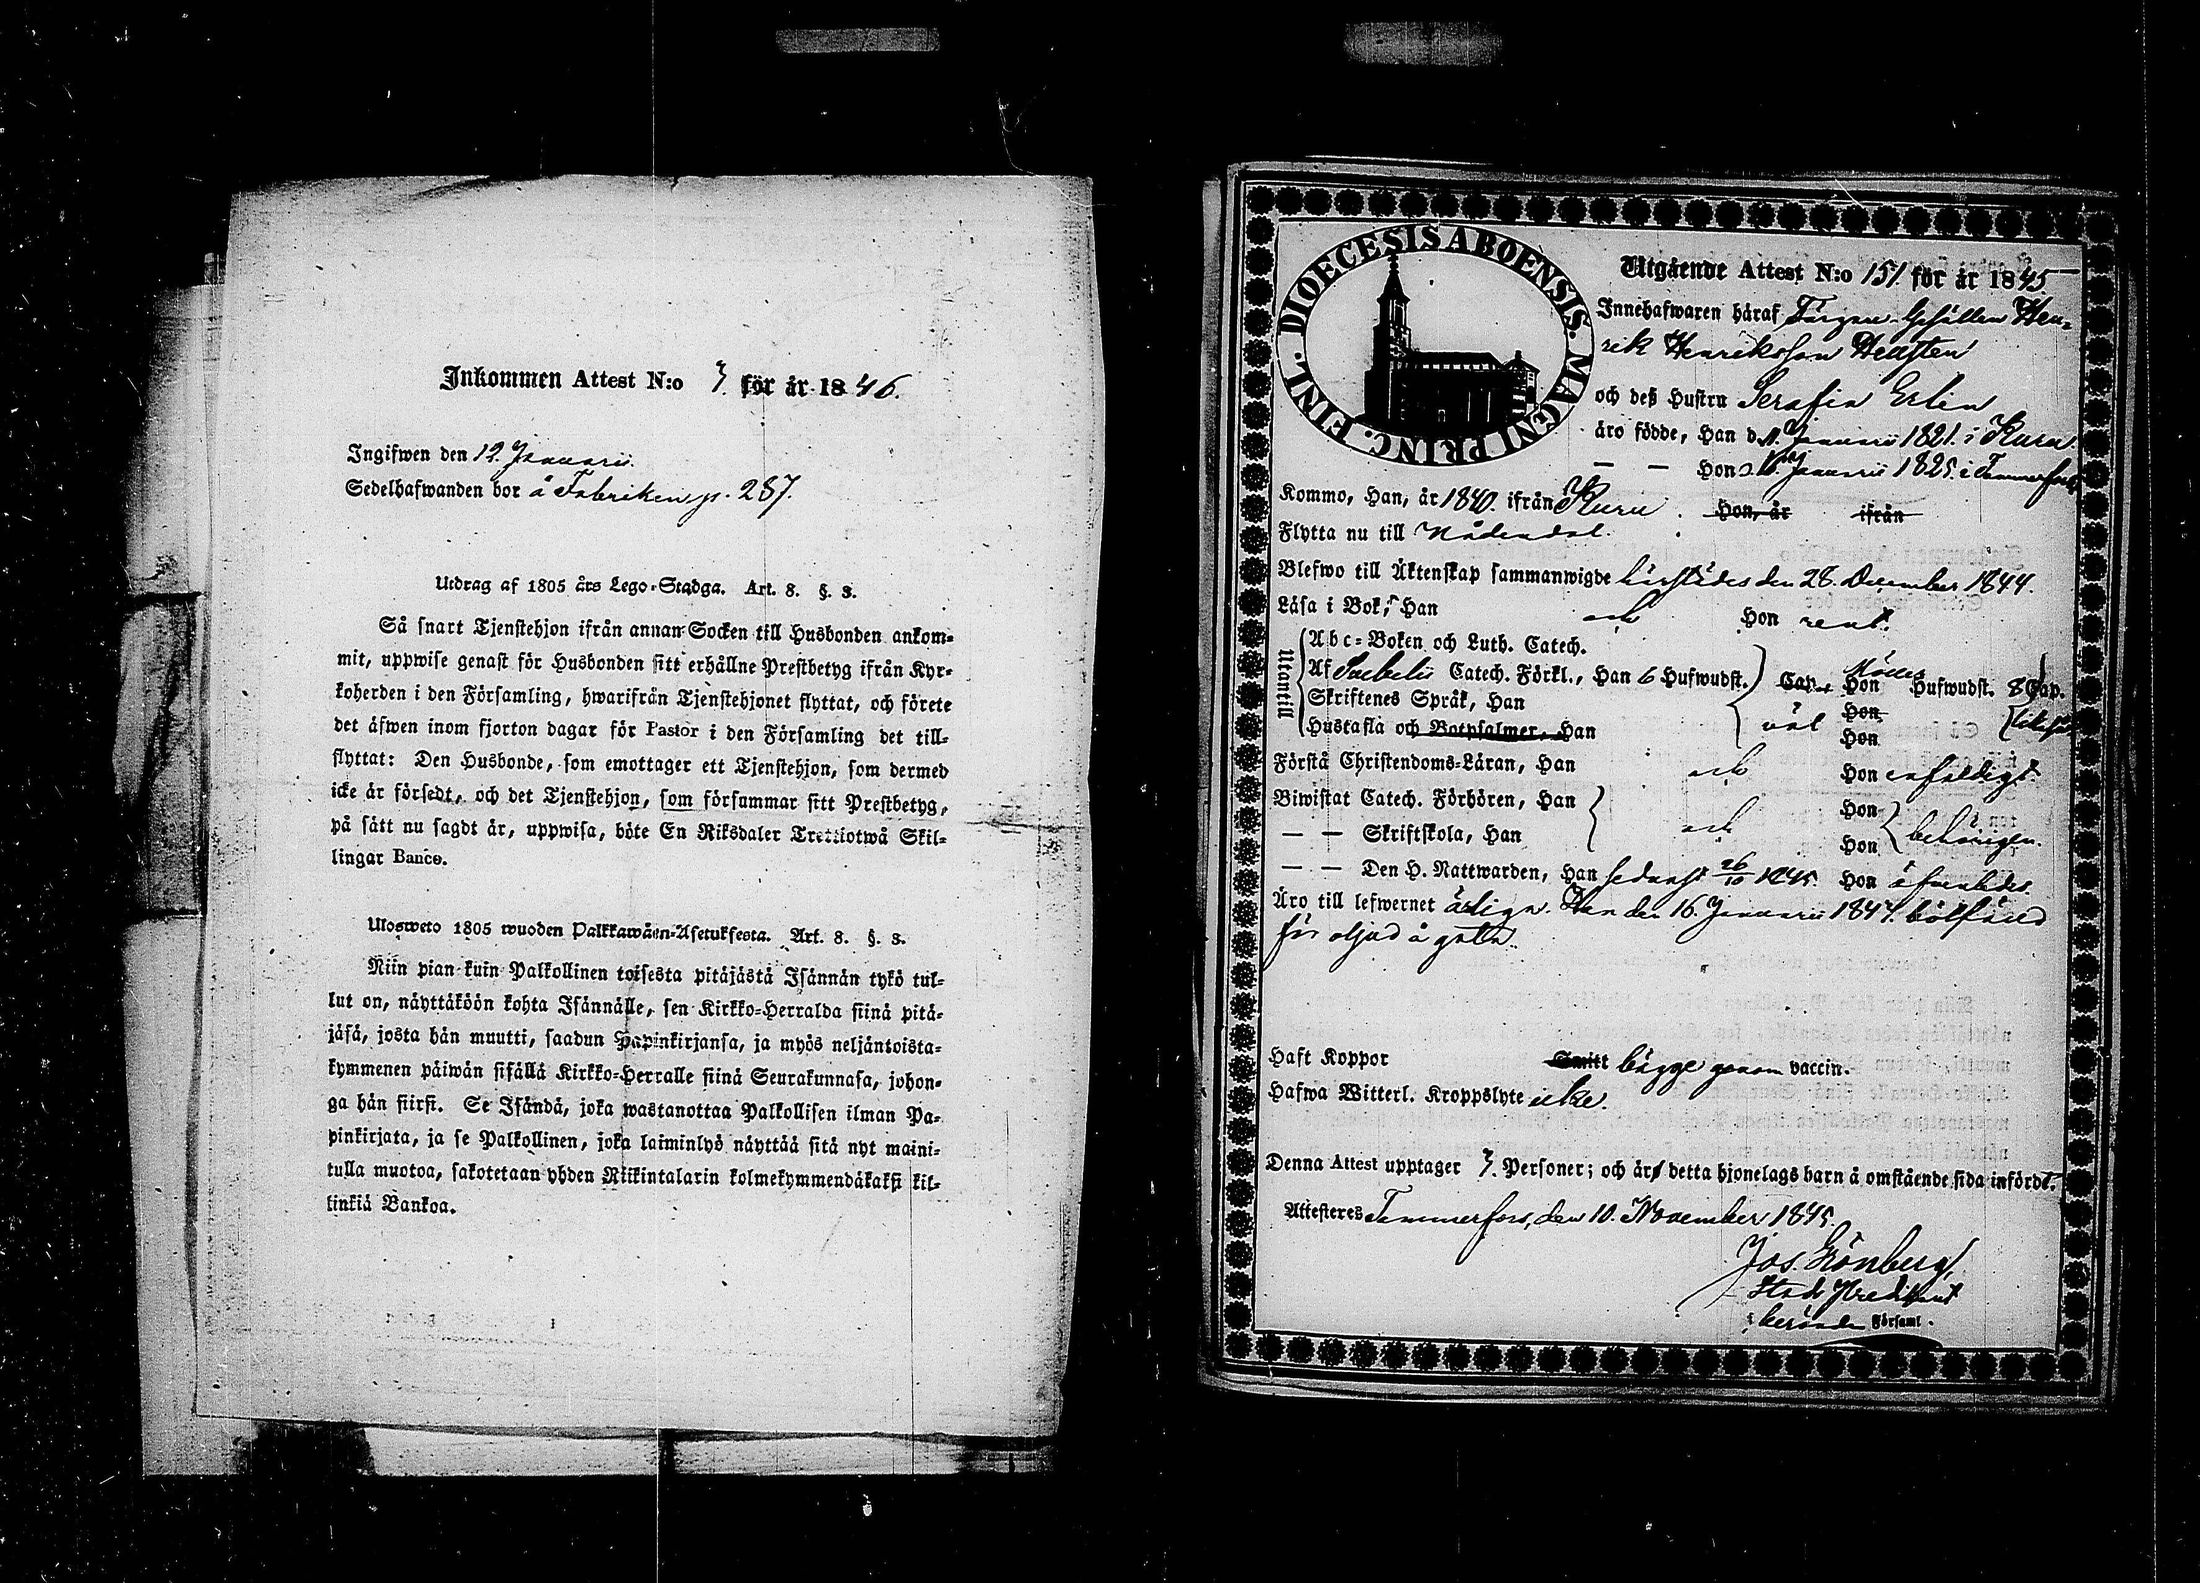 Inkommen Attest N:o 3. för år 1846.
Ingifwen den 12. Januarii.
Sedelhafwanden bor å Fabriken p. 287.
Utdrag af 1805 års Lego-Stadga. Art. 8. §. 3.
Så snart Tjenstehjon ifrån annan Socken till Husbonden ankom-
mit, uppwise genast för Husbonden sitt erhållne Prestbetyg ifrån Kyr-
koherden i den Församling, hwarifrån Tjenstehjonet flyttat, och förete
det äfwen inom fjorton dagar för Pastor i den Församling det till-
flyttat: Den Husbonde, som emottager ett Tjenstehjon, som dermed
icke är försedt, och det Tjenstehjon, som försummar sitt Prestbetyg,
på sätt nu sagdt är, uppwisa, böte En Riksdaler Trettiotwå Skil-
lingar Banco.
Ulosweto 1805 wuoden Palkkawäen-Asetuksesta. Art. 8. §. 3.
Niin pian kuin Palkollinen toisesta pitäjästä Isännän tykö tul-
lut on, näyttäköön kohta Isännälle, sen Kirkko-Herralda siinä pitä-
jäsä, josta hän muutti, saadun Papinkirjansa, ja myös neljäntoista-
kymmenen päiwän sisällä Kirkko-Herralle siinä Seurakunnasa, johon-
ga hän siirsi. Se Isändä, joka wastanottaa Palkollisen ilman Pa-
pinkirjata, ja se Palkollinen, joka laiminlyö näyttää sitä nyt maini-
tulla muotoa, sakotetaan yhden Riikintalarin kolmekymmendäkaksi kil-
linkiä Bankoa.
DIOECESIS ABOENSIS. MAGNI PRINC. FINL.
Utgående Attest N:o 151 för år 1845
Innehafwaren häraf Färgare Gesällen Hen-
rik Henriksson Hellsten
och deß Hustru Serafia Erlin
äro födde, Han d. 1. Januarii 1821. i Kuru
— — Hon d. Januarii 1825. i Tammerfors
Kommo, Han, år 1840. ifrån Kuru. Hon, år ifrån
Flytta nu till Nådendal.
Blefwo till Äktenskap sammanwigde härstädes den 28. December 1844.
Läsa i Bok, Han och Hon rent.
Utantill
Abc-Boken och Luth. Catech.
Af Catech. Förkl., Han 6 Hufwudst. Cap., Hon Hufwudst. 8 Cap.
Skriftenes Språk, Han Hon
Hustafla och Botpsalmer, Han väl Hon
Förstå Christendoms-Läran, Han och Hon enfaldigt
Biwistat Catech. Förhören, Han Hon
— — Skriftskola, Han och Hon behörigen.
— — Den H. Nattwarden, Han sednast 26/10 1845. Hon äfwenledes
Äro till lefwernet ärliga. Han den 16. Januarii 1841. bötfäld
för oljud å gata.
Haft Koppor Smitt bägge genom vaccin.
Hafwa Witterl. Kroppslyte icke.
Denna Attest upptager 3. Personer; och är detta hjonelags barn å omstående sida infördt.
Attesteres Tammerfors, den 10. November 1845.
Jos. Grönberg,
Stads Predikant
i berörde Församl.